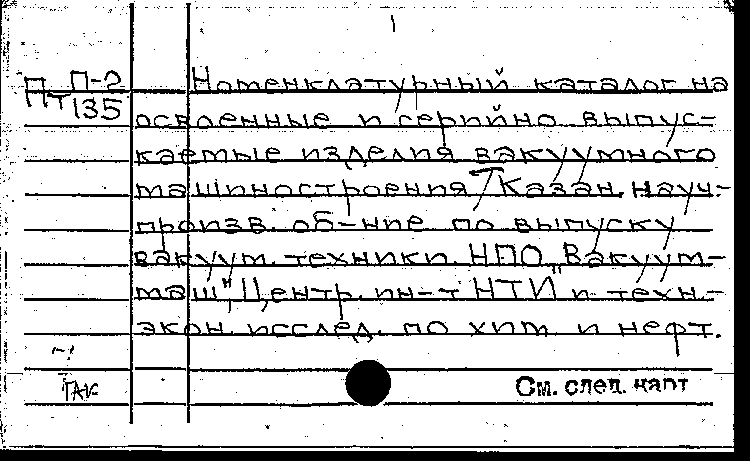 П-2 Номенклатурный каталог на
Пт 135
освоенные и серийно выпус-
каемые изделия вакуумного
машиностроения / Казан. науч.-
произв. об-ние по выпуску
вакуум. техники. НПО "Вакуум-
маш", Центр. ин-т НТИ и техн.-
экон. исслед. по хим. и нефт.
См. след. карт